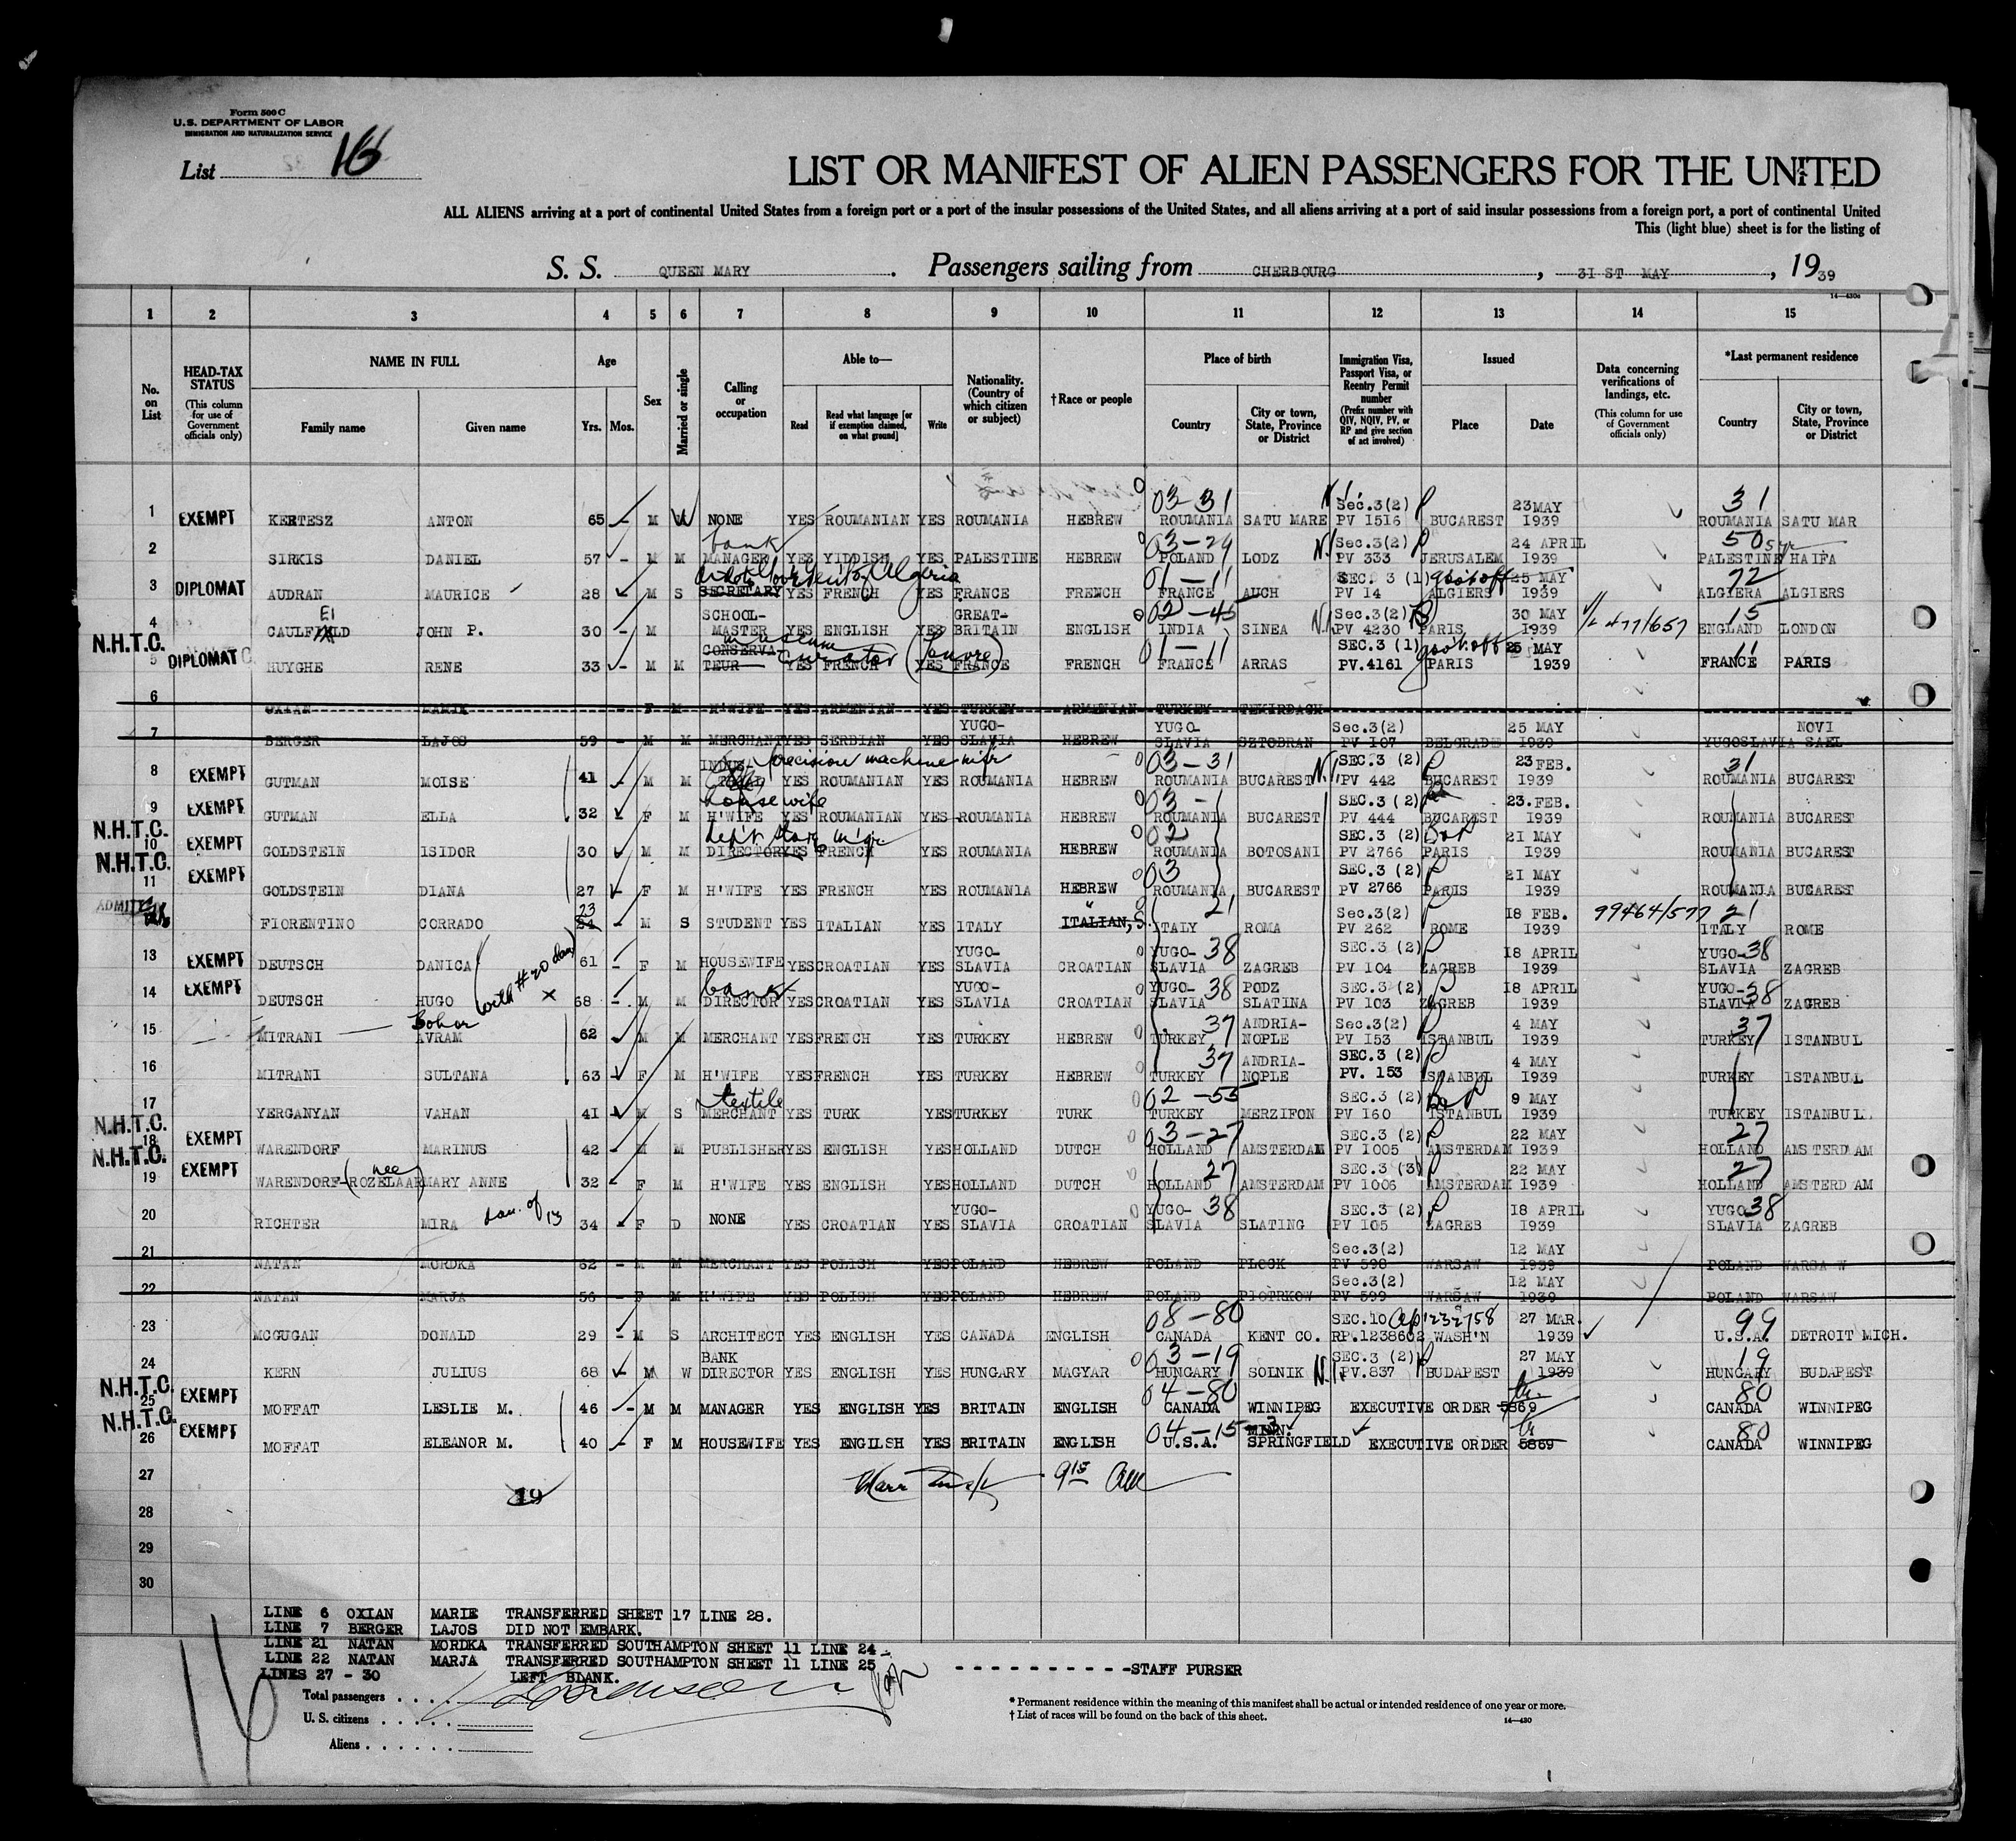 Form 500 C
U.S. DEPARTMENT OF LABOR
IMMIGRATION AND NATURALIZATION SERVICE
List 16
LIST OR MANIFEST OF ALIEN PASSENGERS FOR THE UNITED
ALL ALIENS arriving at a port of continental United States from a foreign port or a port of the insular possessions of the United States, and all aliens arriving at a port of said insular possessions from a foreign port, a port of continental United
This (light blue) sheet is for the listing of
S. S. QUEEN MARY. Passengers sailing from CHERBOURG, 31 ST MAY, 1939
14—430a
1 2 3 4 5 6 7 8 9 10 11 12 13 14 15
No. on List
HEAD-TAX STATUS (This column for use of Government officials only)
NAME IN FULL Family name Given name
Age Yrs. Mos.
Sex
Married or single
Calling or occupation
Able to— Read Read what language [or if exemption claimed, on what ground] Write
Nationality. (Country of which citizen or subject)
†Race or people
Place of birth Country City or town, State, Province or District
Immigration Visa, Passport Visa, or Reentry Permit number (Prefix number with QIV, NQIV, PV, or RP and give section of act involved)
Issued Place Date
Data concerning verifications of landings, etc. (This column for use of Government officials only)
*Last permanent residence Country City or town, State, Province or District
1 EXEMPT KERTESZ ANTON 65 - M W NONE YES ROUMANIAN YES ROUMANIA HEBREW 03-31 ROUMANIA SATU MARE Sec.3(2) PV 1516 BUCAREST 23 MAY 1939 31 ROUMANIA SATU MAR
2 SIRKIS DANIEL 57 - M M bank MANAGER YES YIDDISH YES PALESTINE HEBREW 03-29 POLAND LODZ Sec.3(2) PV 333 JERUSALEM 24 APRIL 1939 50 5 yr PALESTINE HAIFA
3 DIPLOMAT AUDRAN MAURICE 28 M S SECRETARY Algeria YES FRENCH YES FRANCE FRENCH 01-11 FRANCE AUCH SEC. 3 (1) PV 14 ALGIERS gov't off 25 MAY 1939 72 ALGIERA ALGIERS
4 CAULFIELD EI JOHN P. 30 - M SCHOOL-MASTER YES ENGLISH YES GREAT-BRITAIN ENGLISH 02-45 INDIA SINEA Sec.3(2) PV 4230 PARIS 30 MAY 1939 477/657 15 ENGLAND LONDON
N.H.T.C.
5 DIPLOMAT HUYGHE RENE 33 - M M CONSERVATEUR museum curator (Louvre) YES FRENCH YES FRANCE FRENCH 01-11 FRANCE ARRAS SEC.3 (1) PV.4161 PARIS gov't off 25 MAY 1939 11 FRANCE PARIS
6 F M H'WIFE YES ARMENIAN YES TURKEY ARMENIAN TURKEY TEKIRDAGH
7 BERGER LAJOS 59 - M M MERCHANT YES SERBIAN YES YUGO-SLAVIA HEBREW YUGO-SLAVIA SZTOBRAN Sec.3(2) PV 107 BELGRADE 25 MAY 1939 YUGOSLAVIA NOVI SAEL
8 EXEMPT GUTMAN MOISE 41 - M M precision machine mfr YES ROUMANIAN YES ROUMANIA HEBREW 03-31 ROUMANIA BUCAREST SEC.3 (2) PV 442 BUCAREST 23 FEB. 1939 31 ROUMANIA BUCAREST
9 EXEMPT GUTMAN ELLA 32 F M housewife H'WIFE YES ROUMANIAN YES ROUMANIA HEBREW 03- ROUMANIA BUCAREST SEC.3 (2) PV 444 BUCAREST 23.FEB. 1939 ROUMANIA BUCAREST
N.H.T.C.
10 EXEMPT GOLDSTEIN ISIDOR 30 M M dep't store m'g'r DIRECTOR YES FRENCH YES ROUMANIA HEBREW 02 ROUMANIA BOTOSANI SEC.3 (2) PV 2766 PARIS 21 MAY 1939 ROUMANIA BUCAREST
N.H.T.C.
11 EXEMPT GOLDSTEIN DIANA 27 F M H'WIFE YES FRENCH YES ROUMANIA HEBREW 03 ROUMANIA BUCAREST SEC.3 (2) PV 2766 PARIS 21 MAY 1939 ROUMANIA BUCAREST
FIORENTINO CORRADO 23 24 - M S STUDENT YES ITALIAN YES ITALY ITALIAN, S. 21 ITALY ROMA Sec.3(2) PV 262 ROME 18 FEB. 1939 99464/577 21 ITALY ROME
13 EXEMPT DEUTSCH DANICA with # 20 dau 61 - F M HOUSEWIFE YES CROATIAN YES YUGO-SLAVIA CROATIAN YUGO-SLAVIA 38 ZAGREB SEC.3 (2) PV 104 ZAGREB 18 APRIL 1939 YUGO-SLAVIA 38 ZAGREB
14 EXEMPT DEUTSCH HUGO × 68 - M M bank DIRECTOR YES CROATIAN YES YUGO-SLAVIA CROATIAN YUGO-SLAVIA 38 PODZ SLATINA SEC.3 (2) PV 103 ZAGREB 18 APRIL 1939 YUGO-SLAVIA 38 ZAGREB
15 MITRANI Bohor AVRAM 62 M M MERCHANT YES FRENCH YES TURKEY HEBREW 37 TURKEY ANDRIA-NOPLE Sec.3(2) PV 153 ISTANBUL 4 MAY 1939 37 TURKEY ISTANBUL
16 MITRANI SULTANA 63 F M H'WIFE YES FRENCH YES TURKEY HEBREW 37 TURKEY ANDRIA-NOPLE SEC.3 (2) PV. 153 ISTANBUL 4 MAY 1939 TURKEY ISTANBUL
17 YERGANYAN VAHAN 41 M S textile MERCHANT YES TURK YES TURKEY TURK 02-55 TURKEY MERZIFON SEC.3 (2) PV 160 ISTANBUL 9 MAY 1939 TURKEY ISTANBUL
N.H.T.C.
18 EXEMPT WARENDORF MARINUS 42 - M M PUBLISHER YES ENGLISH YES HOLLAND DUTCH 03-27 HOLLAND AMSTERDAM SEC.3 (2) PV 1005 AMSTERDAM 22 MAY 1939 27 HOLLAND AMSTERDAM
N.H.T.C.
19 EXEMPT WARENDORF-(nee ROZELAAR) MARY ANNE 32 F M H'WIFE YES ENGLISH YES HOLLAND DUTCH 27 HOLLAND AMSTERDAM SEC.3 (3) PV 1006 AMSTERDAM 22 MAY 1939 27 HOLLAND AMSTERDAM
20 RICHTER MIRA dau. of 13 34 F D NONE YES CROATIAN YES YUGO-SLAVIA CROATIAN YUGO-SLAVIA 38 SLATING SEC.3 (2) PV 105 ZAGREB 18 APRIL 1939 YUGO SLAVIA 38 ZAGREB
21 NATAN MORDKA 62 - M M MERCHANT YES POLISH YES POLAND HEBREW POLAND PLOCK Sec.3(2) PV 598 WARSAW 12 MAY 1939 POLAND WARSAW
22 NATAN MARJA 56 - F M H'WIFE YES POLISH YES POLAND HEBREW POLAND PIOTRKOW Sec.3(2) PV 599 WARSAW 12 MAY 1939 POLAND WARSAW
23 MCGUGAN DONALD 29 - M S ARCHITECT YES ENGLISH YES CANADA ENGLISH 08-80 CANADA KENT CO. SEC.10 RP.1238602 WASH'N 27 MAR. 1939 99 U.S.A. DETROIT MICH.
24 KERN JULIUS 68 - M W BANK DIRECTOR YES ENGLISH YES HUNGARY MAGYAR 03-19 HUNGARY SOLNIK SEC.3 (2) PV.837 BUDAPEST 27 MAY 1939 19 HUNGARY BUDAPEST
N.H.T.C.
25 EXEMPT MOFFAT LESLIE M. 46 - M M MANAGER YES ENGLISH YES BRITAIN ENGLISH 04-80 CANADA WINNIPEG EXECUTIVE ORDER 5869 80 CANADA WINNIPEG
N.H.T.C.
26 EXEMPT MOFFAT ELEANOR M. 40 - F M HOUSEWIFE YES ENGILSH YES BRITAIN ENGLISH 04-15 U.S.A. MINN. SPRINGFIELD EXECUTIVE ORDER 5869 80 CANADA WINNIPEG
27 9 15 AM
19
28
29
30
LINE 6 OXIAN MARIE TRANSFERRED SHEET 17 LINE 28.
LINE 7 BERGER LAJOS DID NOT EMBARK.
LINE 21 NATAN MORDKA TRANSFERRED SOUTHAMPTON SHEET 11 LINE 24
LINE 22 NATAN MARJA TRANSFERRED SOUTHAMPTON SHEET 11 LINE 25
LINES 27 - 30 LEFT BLANK.
- - - - - - - - - -STAFF PURSER
Total passengers . . . .
U. S. citizens . . . . .
Aliens . . . . . .
* Permanent residence within the meaning of this manifest shall be actual or intended residence of one year or more.
† List of races will be found on the back of this sheet.
14—430
16